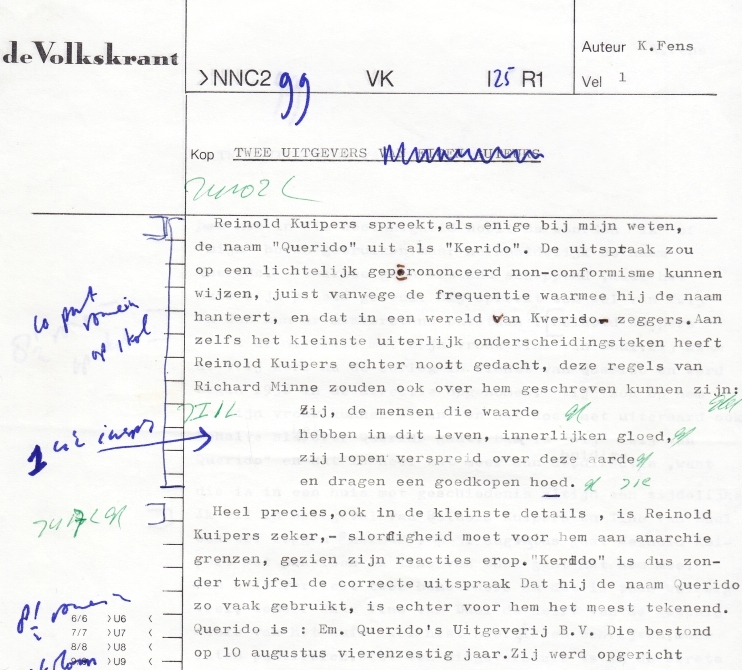 de Volkskrant
Auteur K.Fens
>NNC2 gg VK 125 R1
Vel 1
Kop TWEE UITGEVERS
Reinold Kuipers spreekt,als enige bij mijn weten,
de naam "Querido" uit als "Kerido". De uitspraak zou
op een lichtelijk geperononceerd non-conformisme kunnen
wijzen, juist vanwege de frequentie waarmee hij de naam
hanteert, en dat in een wereld van Kwerido- zeggers.Aan
zelfs het kleinste uiterlijk onderscheidingsteken heeft
Reinold Kuipers echter nooit gedacht, deze regels van
Richard Minne zouden ook over hem geschreven kunnen zijn:
Zij, de mensen die waarde
hebben in dit leven, innerlijken gloed,
zij lopen verspreid over deze aarde
en dragen een goedkopen hoed.
Heel precies,ook in de kleinste details , is Reinold
Kuipers zeker,- slordigheid moet voor hem aan anarchie
grenzen, gezien zijn reacties erop."Kerido" is dus zon-
der twijfel de correcte uitspraak Dat hij de naam Querido
zo vaak gebruikt, is echter voor hem het meest tekenend.
Querido is : Em. Querido's Uitgeverij B.V. Die bestond
op 10 augustus vierenzestig jaar.Zij werd opgericht
romein
op 1 kol
6/6 >U6 <
7/7 >U7 <
8/8 >U8 <
>U9 <